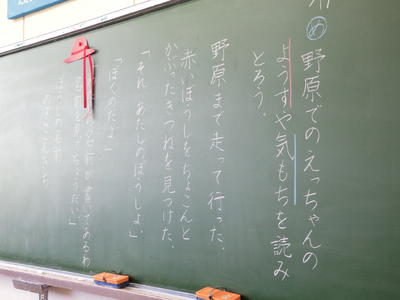 め 野原でのえっちゃんの
ようすや気もちを読み
とろう。
野原まで走って行った。
赤いぼうしをちょこんと
かぶったきつねを見つけた。
「それ、あたしのぼうしよ。」
「ぼくのだよ」
名前が書いてあるわ
を見てちょうだい」